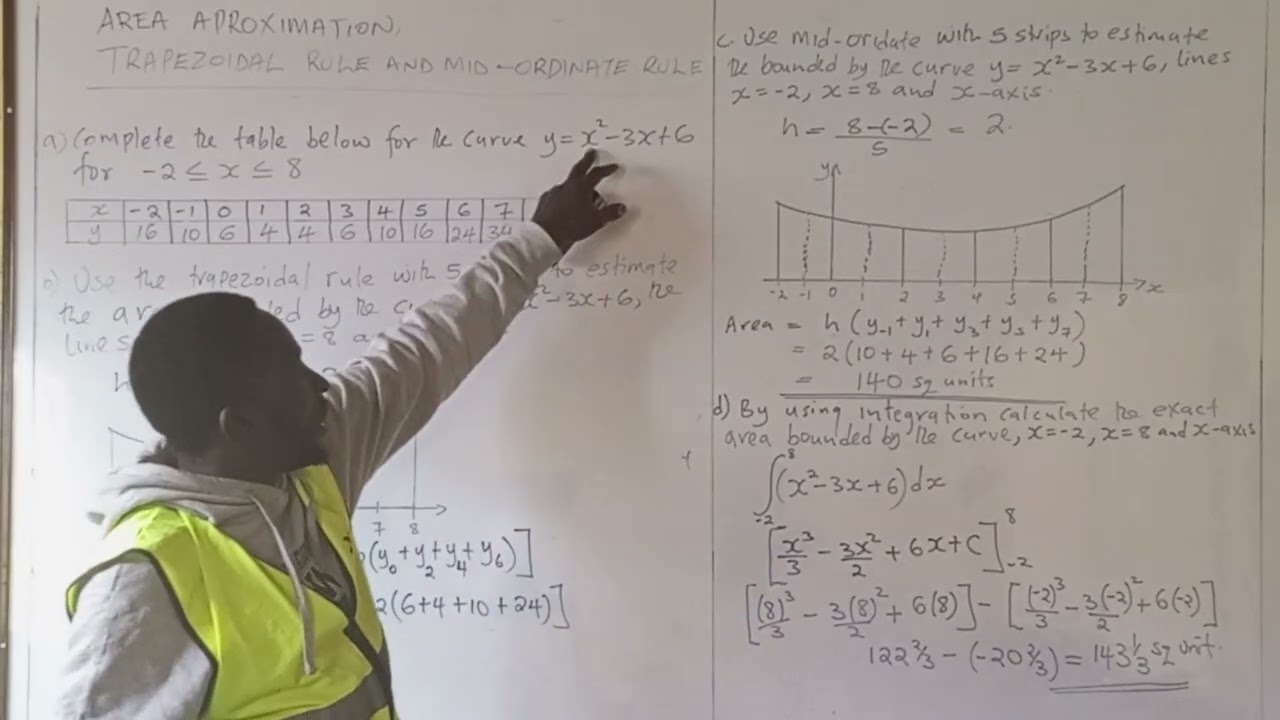 AREA APROXIMATION,
TRAPEZOIDAL RULE AND MID-ORDINATE RULE
a) Complete the table below for the curve y = x² - 3x + 6
for -2 ≤ x ≤ 8
x -2 -1 0 1 2 3 4 5 6 7
y 16 10 6 4 4 6 10 16 24 34
b) Use the trapezoidal rule with 5 to estimate
the by the x² - 3x + 6, the
lines = 8
7 8
(y₀ + y₂ + y₄ + y₆)]
2(6+4+10+24)]
c. Use mid-ordate with 5 strips to estimate
the bounded by the curve y = x² - 3x + 6, lines
x = -2, x = 8 and x-axis.
h = 8-(-2)/5 = 2.
y
-2 -1 0 1 2 3 4 5 6 7 8 x
Area = h (y₋₁ + y₁ + y₃ + y₅ + y₇)
= 2(10 + 4 + 6 + 16 + 24)
= 140 sq units
d) By using integration calculate the exact
area bounded by the curve, x = -2, x = 8 and x-axis
∫₋₂⁸ (x² - 3x + 6) dx
[x³/3 - 3x²/2 + 6x + C]₋₂⁸
[(8)³/3 - 3(8)²/2 + 6(8)] - [(-2)³/3 - 3(-2)²/2 + 6(-2)]
122 2/3 - (-20 2/3) = 143 1/3 sq unit.